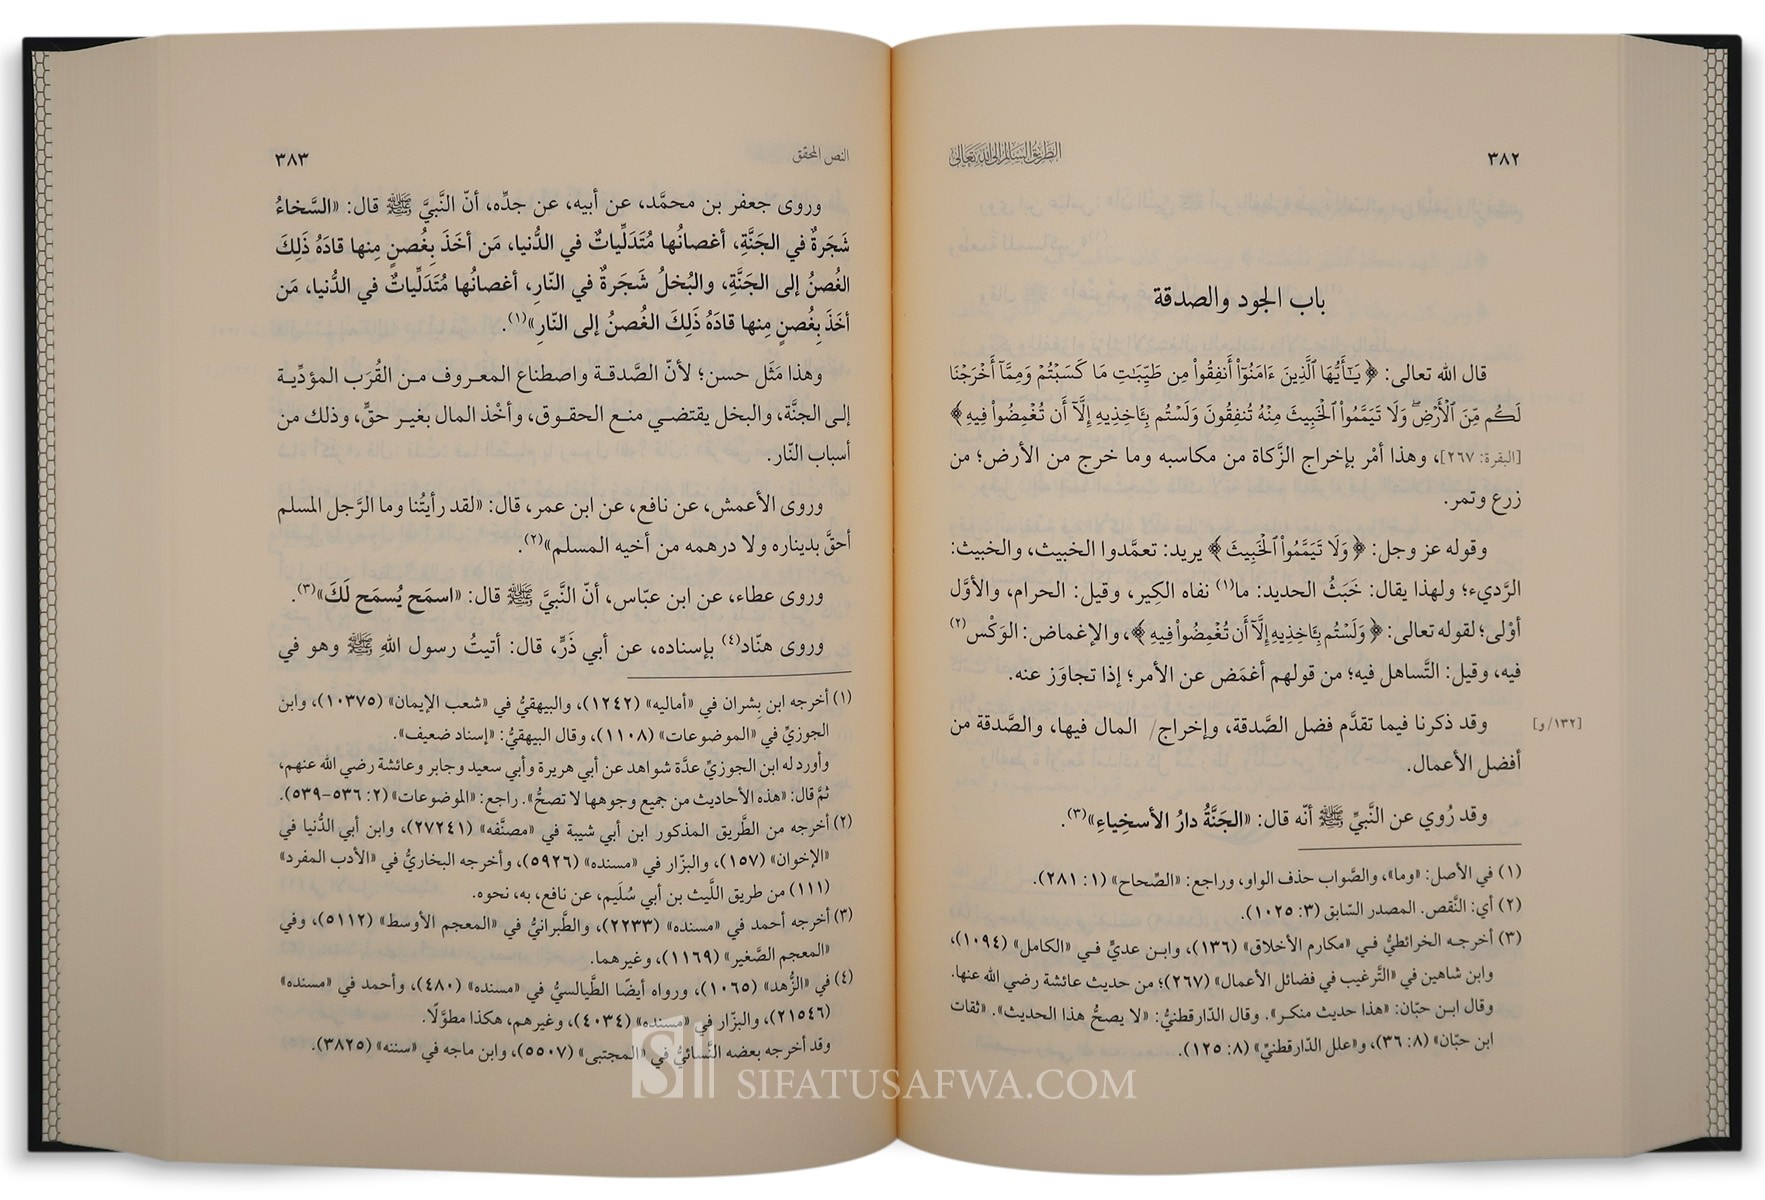 ٣٨٢
الطريق السالم إلى الله تعالى
باب الجود والصدقة
قال الله تعالى: ﴿يَٰٓأَيُّهَا ٱلَّذِينَ ءَامَنُوٓاْ أَنفِقُواْ مِن طَيِّبَٰتِ مَا كَسَبۡتُمۡ وَمِمَّآ أَخۡرَجۡنَا
لَكُم مِّنَ ٱلۡأَرۡضِۖ وَلَا تَيَمَّمُواْ ٱلۡخَبِيثَ مِنۡهُ تُنفِقُونَ وَلَسۡتُم بِـَٔاخِذِيهِ إِلَّآ أَن تُغۡمِضُواْ فِيهِ﴾
[البقرة: ٢٦٧]، وهذا أمْر بإخراج الزَّكاة من مكاسبه وما خرج من الأرض؛ من
زرع وتمر.
وقوله عز وجل: ﴿وَلَا تَيَمَّمُواْ ٱلۡخَبِيثَ﴾ يريد: تعمَّدوا الخبيث، والخبيث:
الرَّديء؛ ولهذا يقال: خَبَثُ الحديد: ما(١) نفاه الكِير، وقيل: الحرام، والأوَّل
أوْلى؛ لقوله تعالى: ﴿وَلَسۡتُم بِـَٔاخِذِيهِ إِلَّآ أَن تُغۡمِضُواْ فِيهِ﴾، والإغماض: الوَكْس(٢)
فيه، وقيل: التَّساهل فيه؛ من قولهم أغمَض عن الأمر؛ إذا تجاوَز عنه.
[١٣٢/ و]
وقد ذكرنا فيما تقدَّم فضل الصَّدقة، وإخراج/ المال فيها، والصَّدقة من
أفضل الأعمال.
وقد رُوي عن النَّبيِّ ﷺ أنّه قال: «الجَنَّةُ دارُ الأسخِياءِ»(٣).
(١) في الأصل: «وما»، والصَّواب حذف الواو، وراجع: «الصِّحاح» (١: ٢٨١).
(٢) أي: النَّقص. المصدر السّابق (٣: ١٠٢٥).
(٣) أخرجه الخرائطيُّ في «مكارم الأخلاق» (١٣٦)، وابن عديٍّ في «الكامل» (١٠٩٤)،
وابن شاهين في «التَّرغيب في فضائل الأعمال» (٢٦٧)؛ من حديث عائشة رضي الله عنها.
وقال ابن حبّان: «هذا حديث منكر». وقال الدّارقطنيُّ: «لا يصحُّ هذا الحديث». «ثقات
ابن حبّان» (٨: ٣٦)، و«علل الدّارقطنيِّ» (٨: ١٢٥).
النص المحقق
٣٨٣
وروى جعفر بن محمَّد، عن أبيه، عن جدِّه، أنّ النَّبيَّ ﷺ قال: «السَّخاءُ
شَجَرةٌ في الجَنَّةِ، أغصانُها مُتَدَلِّياتٌ في الدُّنيا، مَن أخَذَ بِغُصنٍ مِنها قادَهُ ذَلِكَ
الغُصنُ إلى الجَنَّةِ، والبُخلُ شَجَرةٌ في النّارِ، أغصانُها مُتَدَلِّياتٌ في الدُّنيا، مَن
أخَذَ بِغُصنٍ مِنها قادَهُ ذَلِكَ الغُصنُ إلى النّارِ»(١).
وهذا مَثَل حسن؛ لأنّ الصَّدقة واصطناع المعروف من القُرَب المؤدِّية
إلى الجنَّة، والبخل يقتضي منع الحقوق، وأخْذ المال بغير حقٍّ، وذلك من
أسباب النّار.
وروى الأعمش، عن نافع، عن ابن عمر، قال: «لقد رأيتُنا وما الرَّجل المسلم
أحقَّ بديناره ولا درهمه من أخيه المسلم»(٢).
وروى عطاء، عن ابن عبّاس، أنّ النَّبيَّ ﷺ قال: «اسمَح يُسمَح لَكَ»(٣).
وروى هنّاد(٤) بإسناده، عن أبي ذَرٍّ، قال: أتيتُ رسول اللهِ ﷺ وهو في
(١) أخرجه ابن بِشران في «أماليه» (١٢٤٢)، والبيهقيُّ في «شعب الإيمان» (١٠٣٧٥)، وابن
الجوزيِّ في «الموضوعات» (١١٠٨)، وقال البيهقيُّ: «إسناد ضعيف».
وأورد له ابن الجوزيِّ عدَّة شواهد عن أبي هريرة وأبي سعيد وجابر وعائشة رضي الله عنهم،
ثمَّ قال: «هذه الأحاديث من جميع وجوهها لا تصحُّ». راجع: «الموضوعات» (٢: ٥٣٦-٥٣٩).
(٢) أخرجه من الطَّريق المذكور ابن أبي شيبة في «مصنَّفه» (٢٧٢٤١)، وابن أبي الدُّنيا في
«الإخوان» (١٥٧)، والبزّار في «مسنده» (٥٩٢٦)، وأخرجه البخاريُّ في «الأدب المفرد»
(١١١) من طريق اللَّيث بن أبي سُلَيم، عن نافع، به، نحوه.
(٣) أخرجه أحمد في «مسنده» (٢٢٣٣)، والطَّبرانيُّ في «المعجم الأوسط» (٥١١٢)، وفي
«المعجم الصَّغير» (١١٦٩)، وغيرهما.
(٤) في «الزُّهد» (١٠٦٥)، ورواه أيضًا الطَّيالسيُّ في «مسنده» (٤٨٠)، وأحمد في «مسنده»
(٢١٥٤٦)، والبزّار في «مسنده» (٤٠٣٤)، وغيرهم، هكذا مطوَّلًا.
وقد أخرجه بعضه النَّسائيُّ في «المجتبى» (٥٥٠٧)، وابن ماجه في «سننه» (٣٨٢٥).
SIFATUSAFWA.COM